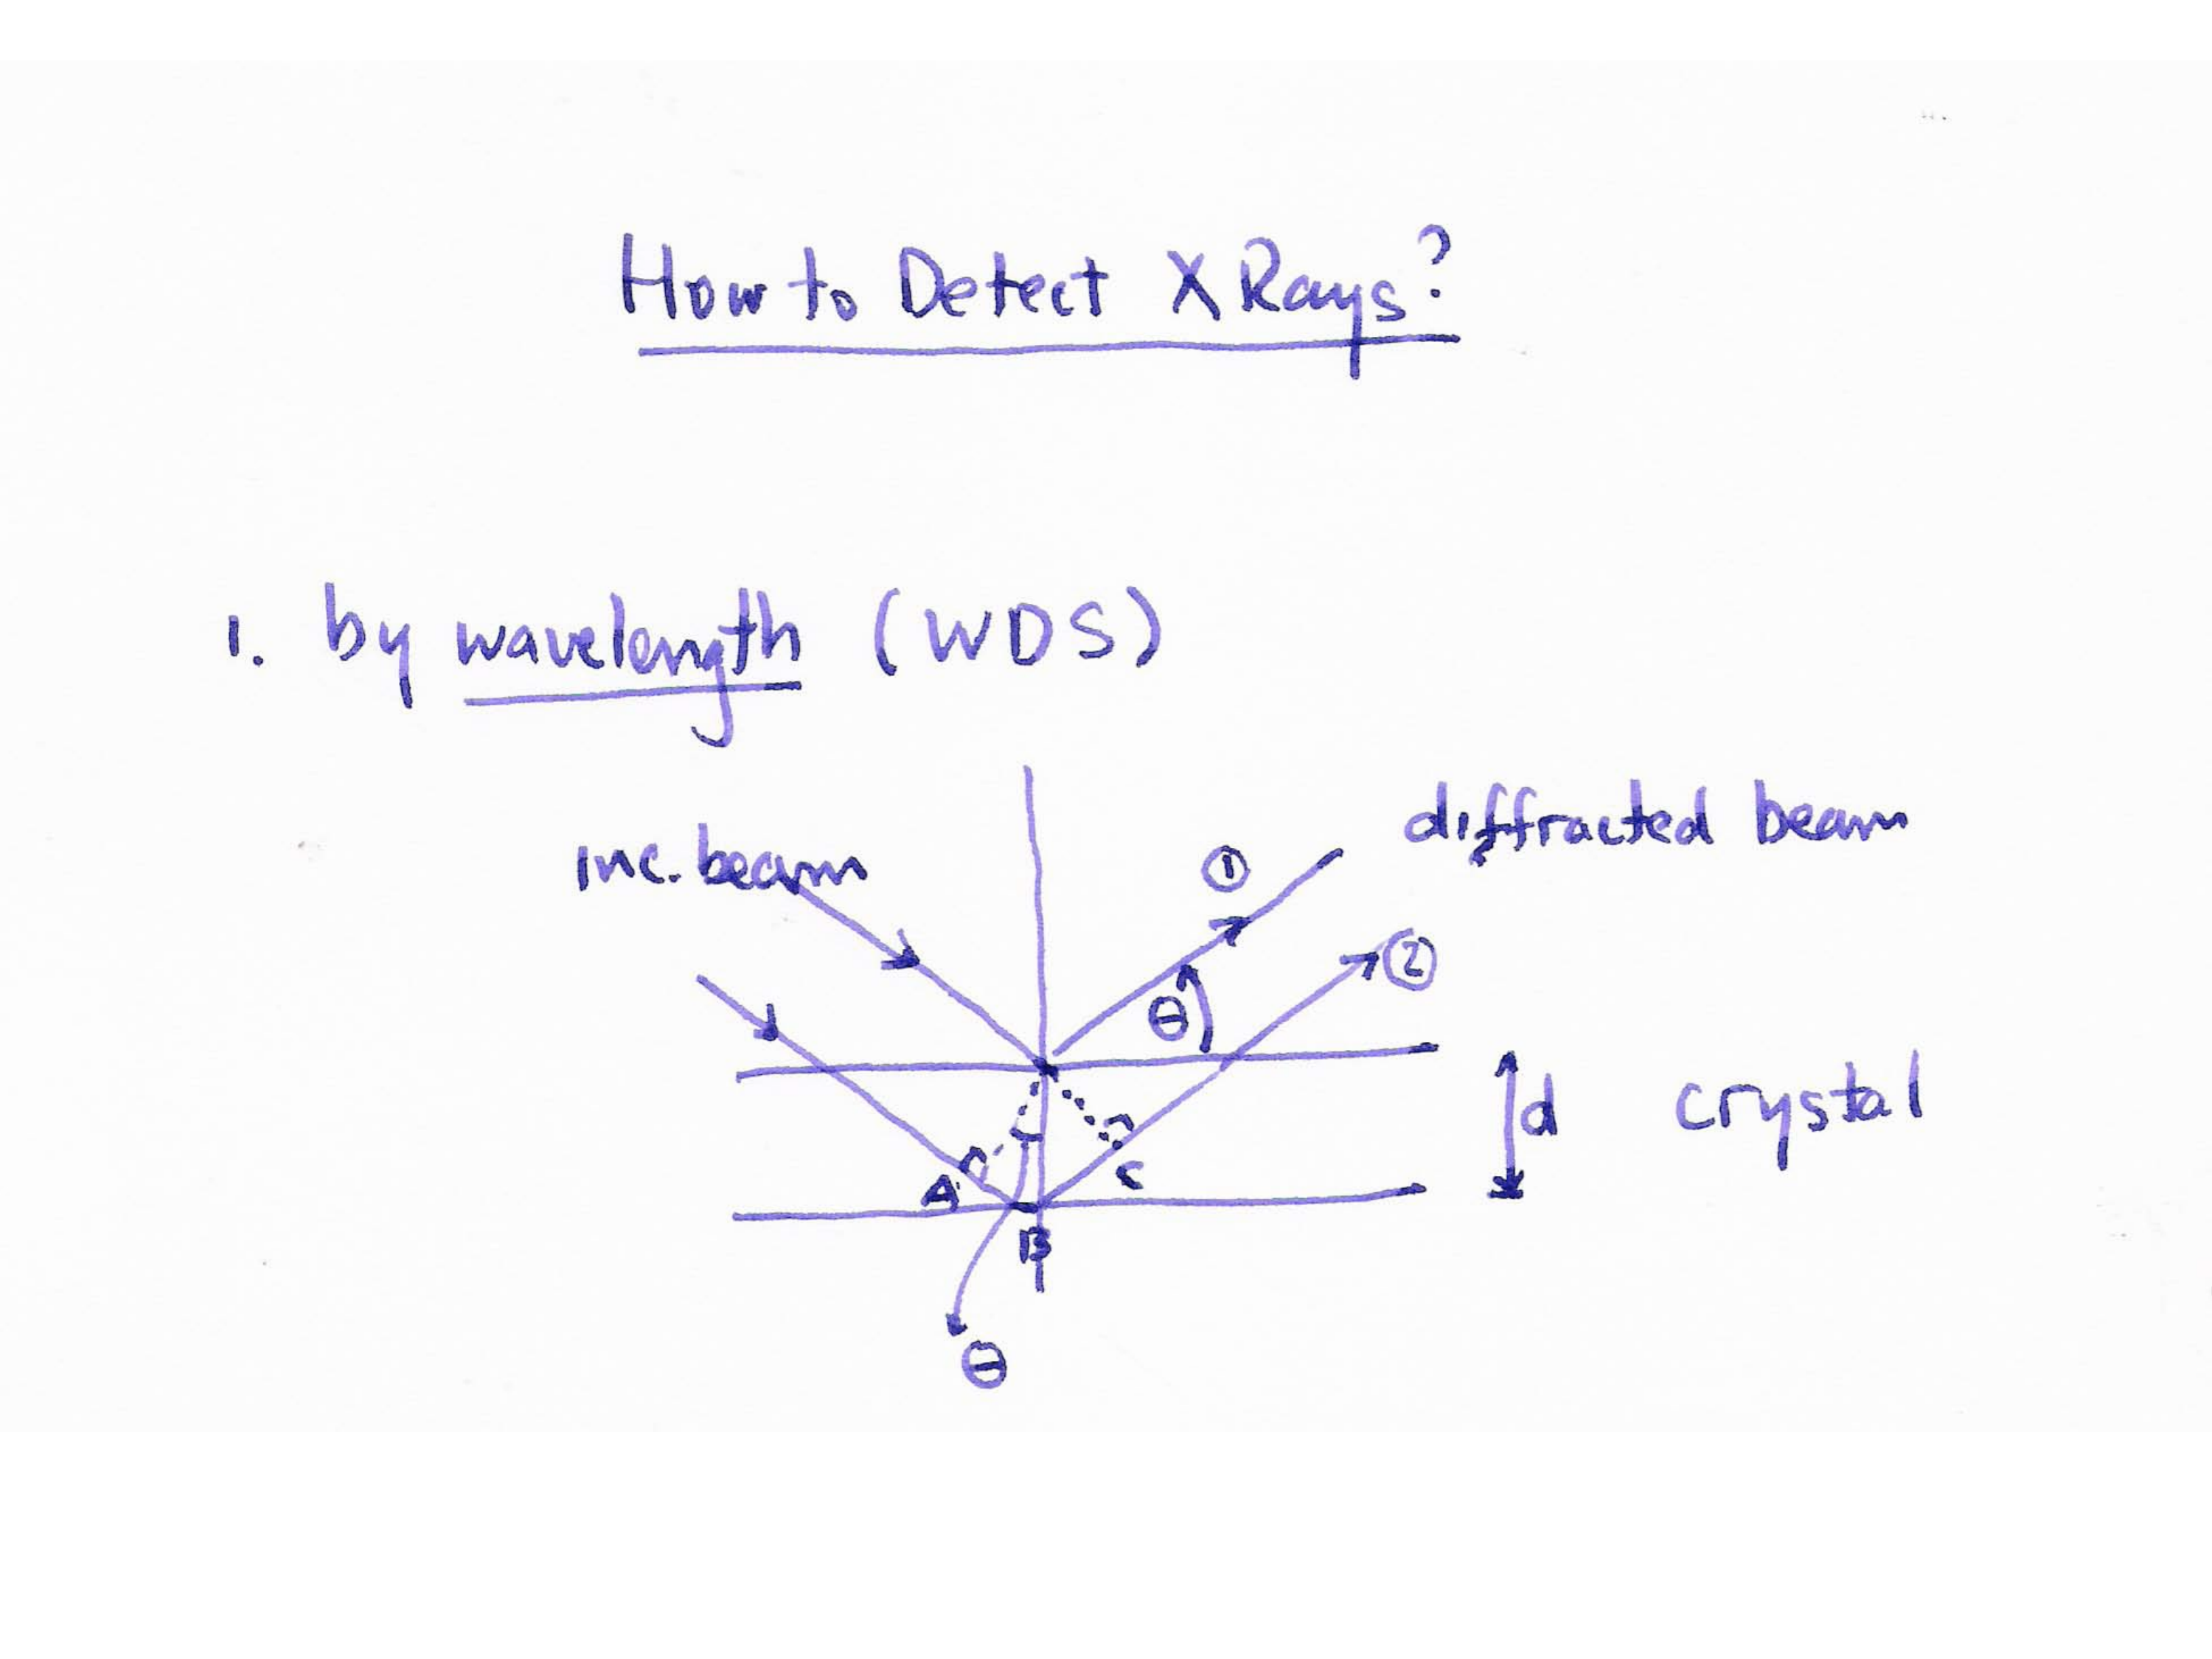 How to Detect X Rays?
1. by wavelength (WDS)
inc. beam
diffracted beam
①
②
θ
d
crystal
A
C
B
θ